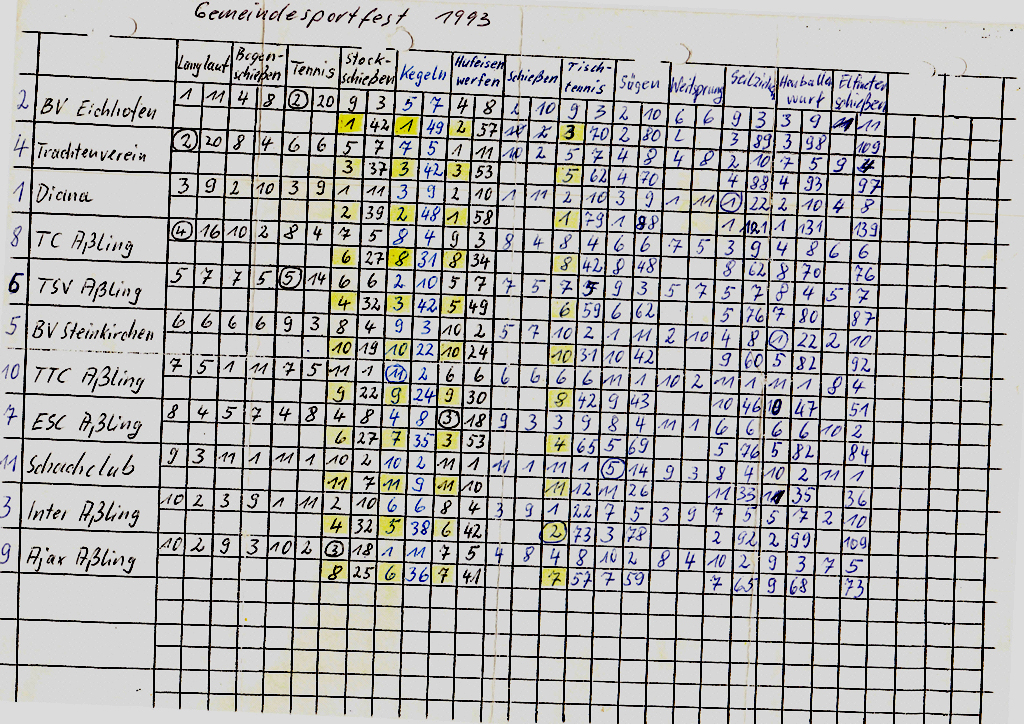 Gemeindesportfest 1993
Langlauf Bogen- schießen Tennis Stock- schießen Kegeln Hufeisen werfen Schießen Tisch- tennis Sägen Weitsprung Seilziehn Heuballn wurf Elfmeter schießen
2 BV Eichhofen 1 11 4 8 2 20 9 3 5 7 4 8 2 10 9 3 2 10 6 6 9 3 3 9 11
1 42 1 49 2 57 3 70 2 80 3 89 3 98 109
4 Trachtenverein 2 20 8 4 6 6 5 7 7 5 1 11 10 2 5 7 4 8 4 8 2 10 7 5 9
3 37 3 42 3 53 5 62 4 70 4 88 4 93 97
1 Diana 3 9 2 10 3 9 1 11 3 9 2 10 1 11 2 10 3 9 1 11 1 22 2 10 4 8
2 39 2 48 1 58 1 79 1 88 1 121 1 131 139
8 TC Aßling 4 16 10 2 8 4 7 5 8 4 9 3 8 4 8 4 6 6 7 5 3 9 4 8 6 6
6 27 8 31 8 34 8 42 8 48 8 62 8 70 76
6 TSV Aßling 5 7 7 5 5 14 6 6 2 10 5 7 7 5 7 5 9 3 5 7 5 7 8 4 5 7
4 32 3 42 5 49 6 59 6 62 5 76 7 80 87
5 BV Steinkirchen 6 6 6 6 9 3 8 4 9 3 10 2 5 7 10 2 1 11 2 10 4 8 1 22 2 10
10 19 10 22 10 24 10 31 10 42 9 60 5 82 92
10 TTC Aßling 7 5 1 11 7 5 11 1 11 2 6 6 6 6 6 6 11 1 10 2 11 1 11 1 8 4
9 22 9 24 9 30 8 42 9 43 10 46 10 47 51
7 ESC Aßling 8 4 5 7 4 8 4 8 4 8 3 18 9 3 3 9 8 4 11 1 6 6 6 6 10 2
6 27 7 35 3 53 4 65 5 69 5 76 5 82 84
11 Schachclub 9 3 11 1 11 1 10 2 10 2 11 1 11 1 11 1 5 14 9 3 8 4 10 2 11 1
11 7 11 9 11 10 11 12 11 26 11 33 11 35 36
3 Inter Aßling 10 2 3 9 1 11 2 10 6 6 8 4 3 9 1 22 7 5 3 9 7 5 5 7 2 10
4 32 5 38 6 42 2 73 3 78 2 92 2 99 109
9 Ajax Aßling 10 2 9 3 10 2 3 18 1 11 7 5 4 8 4 8 10 2 8 4 10 2 9 3 7 5
8 25 6 36 7 41 7 57 7 59 7 65 9 68 73